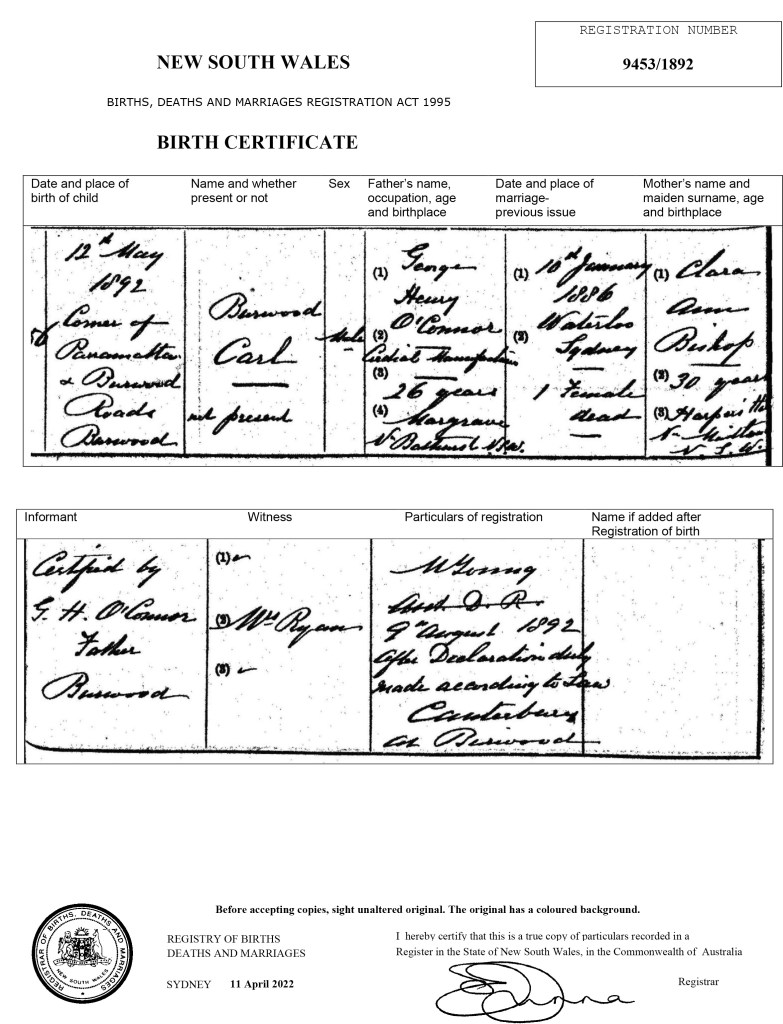 REGISTRATION NUMBER
9453/1892
NEW SOUTH WALES
BIRTHS, DEATHS AND MARRIAGES REGISTRATION ACT 1995
BIRTH CERTIFICATE
Date and place of
birth of child
Name and whether
present or not
Sex
Father's name,
occupation, age
and birthplace
Date and place of
marriage-
previous issue
Mother's name and
maiden surname, age
and birthplace
12th May
1892
Corner of
Parramatta
& Burwood
Roads
Burwood
Burwood
Carl
not present
Male
(1) George
Henry
O'Connor
(2)
Cordial Manufacturer
(3)
26 years
(4) Hargraves
Nr Bathurst N.S.W.
(1) 10th January
1886
Waterloo
(2) Sydney
1 Female
dead
(1) Clara
Ann
Bishop
(2) 30 years
(3) Harper's Hill
Nr Maitland
N. S. W.
Informant
Witness
Particulars of registration
Name if added after
Registration of birth
Certified by
G. H. O'Connor
Father
Burwood
(1)
(2) Mrs Ryan
(3)
Young
D. R.
9th August 1892
After Declaration duly
made according to Law
Canterbury
at Burwood
REGISTRAR OF BIRTHS, DEATHS AND MARRIAGES
NEW SOUTH WALES
Before accepting copies, sight unaltered original. The original has a coloured background.
REGISTRY OF BIRTHS
DEATHS AND MARRIAGES
SYDNEY 11 April 2022
I hereby certify that this is a true copy of particulars recorded in a
Register in the State of New South Wales, in the Commonwealth of Australia
Registrar